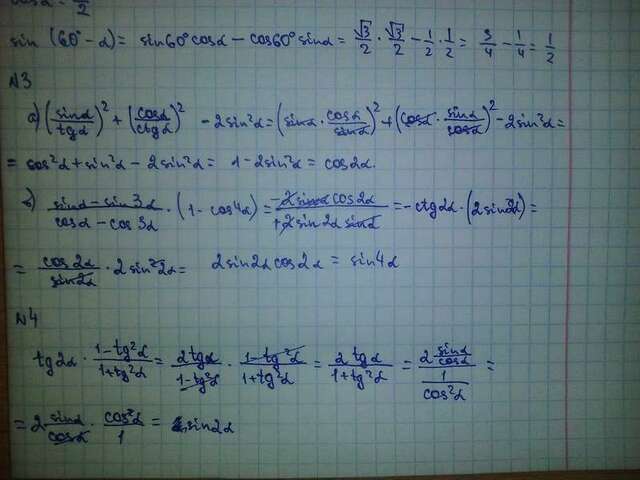 cosα = /2
sin (60° - α) = sin60° cosα - cos60° sinα = √3/2 · √3/2 - 1/2 · 1/2 = 3/4 - 1/4 = 1/2
N3
а) (sinα/tgα)² + (cosα/ctgα)² - 2sin²α = (sinα · cosα/sinα)² + (cosα · sinα/cosα)² - 2sin²α =
= cos²α + sin²α - 2sin²α = 1 - 2sin²α = cos2α.
в) (sinα - sin3α)/(cosα - cos3α) · (1 - cos4α) = (-2sinα cos2α)/(+2sin2α sinα) = -ctg2α · (2sin²2α) =
= cos2α/sin2α · 2sin²2α = 2sin2α cos2α = sin4α
N4
tg2α · (1-tg²α)/(1+tg²α) = 2tgα/(1-tg²α) · (1-tg²α)/(1+tg²α) = 2tgα/(1+tg²α) = (2 sinα/cosα)/(1/cos²α) =
= 2 sinα/cosα · cos²α/1 = sin2α